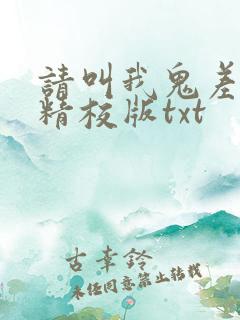 請叫我鬼差
精校版txt
古幸鈴
未经同意禁止转载